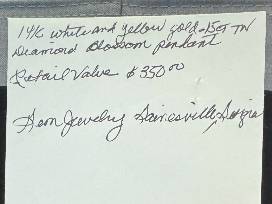 14K white and yellow gold .15ct TW
Diamond Blossom pendant
Retail Value $350.00
Hem Jewelry Gainesville, Georgia